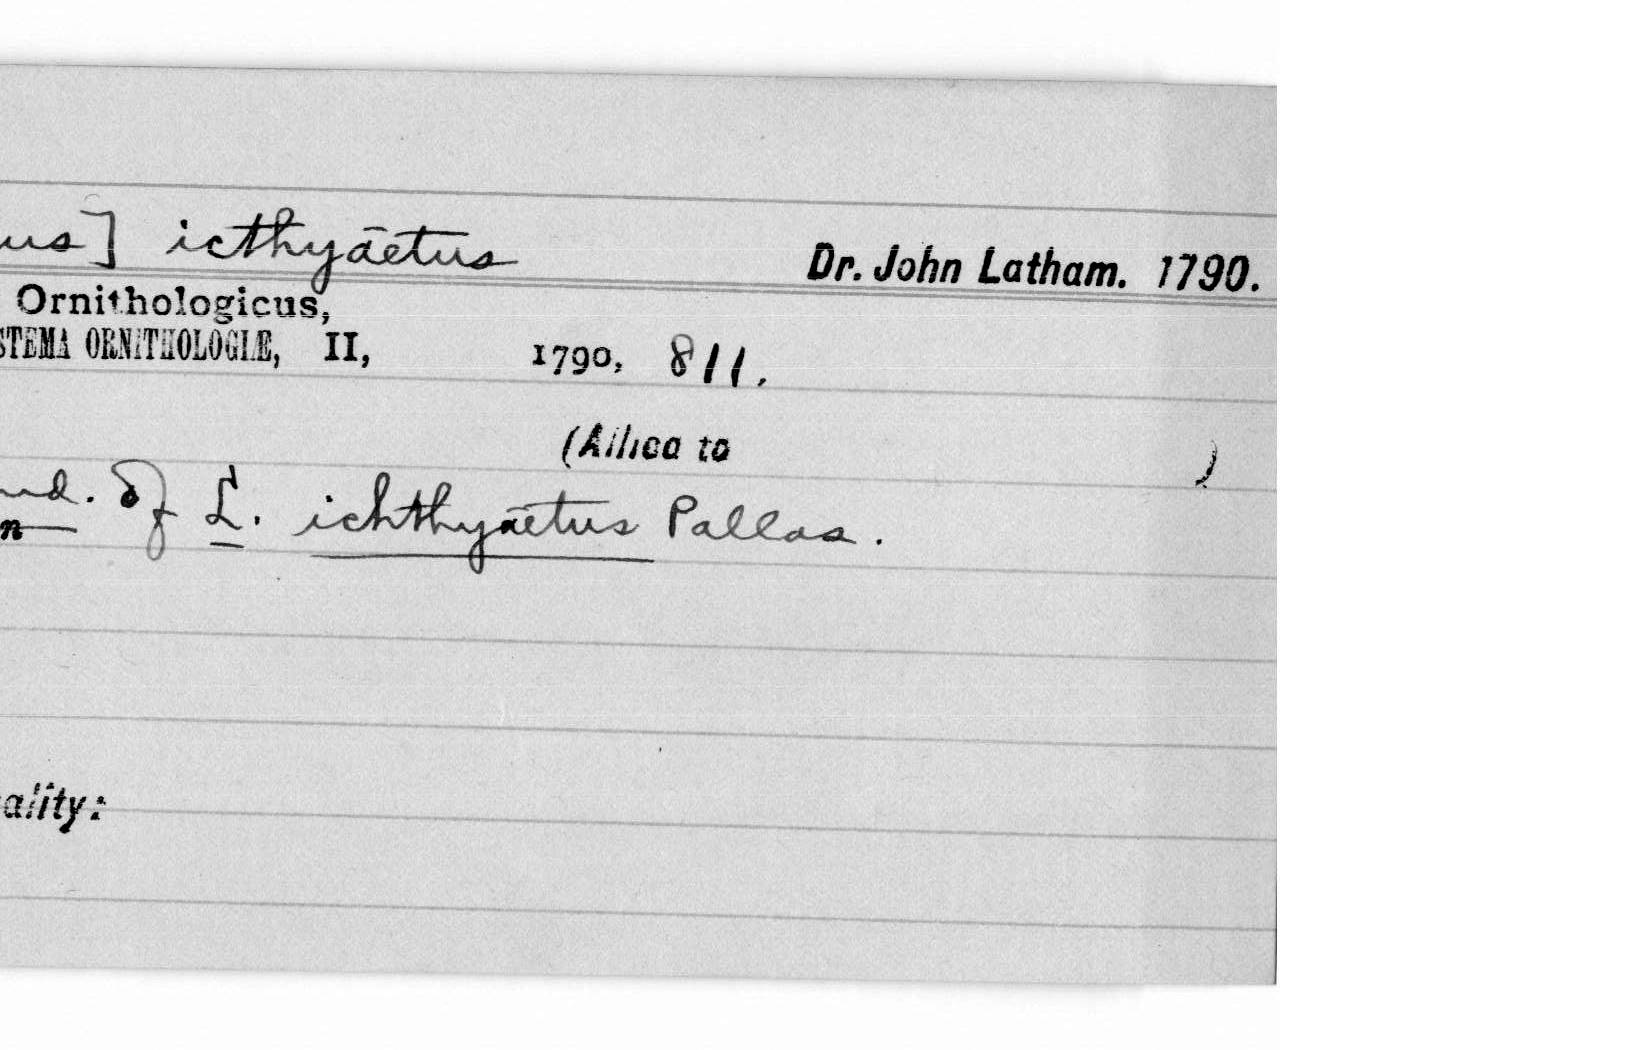 us] icthyäetus Dr. John Latham. 1790.
Ornithologicus,
STEMA ORNITHOLOGIÆ, II, 1790, 811.
(Allied to )
nd. of L. ichthyäetus Pallas.
n
ality: